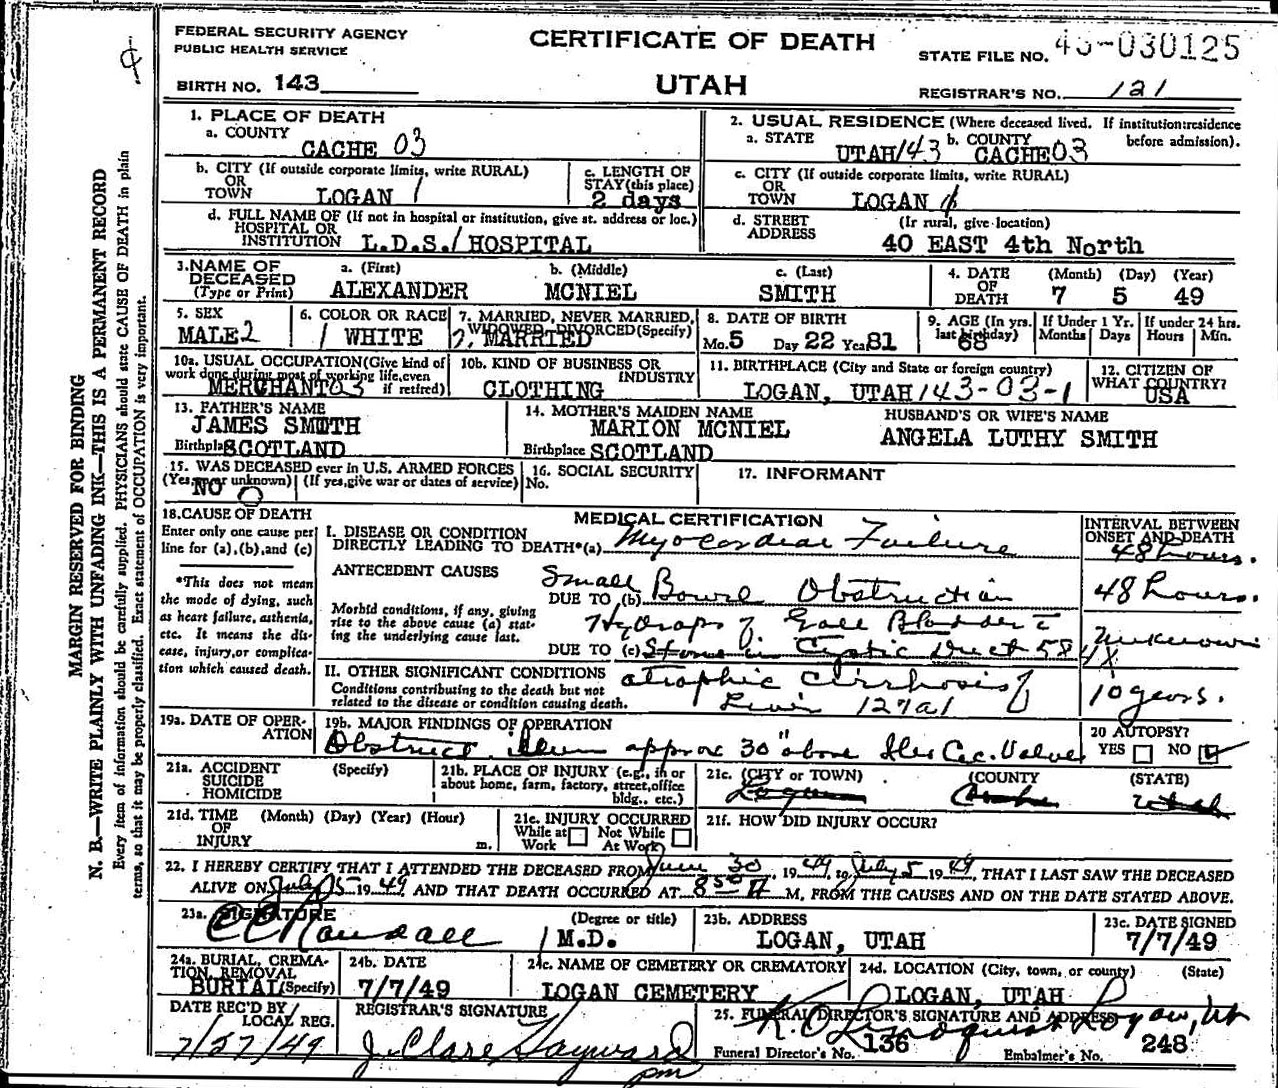 FEDERAL SECURITY AGENCY
PUBLIC HEALTH SERVICE
CERTIFICATE OF DEATH
STATE FILE NO. 49-030125
BIRTH NO. 143
UTAH
REGISTRAR'S NO. 121
1. PLACE OF DEATH
a. COUNTY
CACHE 03
2. USUAL RESIDENCE (Where deceased lived. If institution: residence before admission).
a. STATE UTAH 143 b. COUNTY CACHE 03
b. CITY (If outside corporate limits, write RURAL)
OR
TOWN LOGAN 1
c. LENGTH OF
STAY (this place)
2 days
c. CITY (If outside corporate limits, write RURAL)
OR
TOWN LOGAN
d. FULL NAME OF (If not in hospital or institution, give st. address or loc.)
HOSPITAL OR
INSTITUTION L.D.S. HOSPITAL
d. STREET (If rural, give location)
ADDRESS 40 EAST 4th North
3. NAME OF
DECEASED
(Type or Print)
a. (First)
ALEXANDER
b. (Middle)
MCNIEL
c. (Last)
SMITH
4. DATE
OF
DEATH
(Month) (Day) (Year)
7 5 49
5. SEX
MALE 2
6. COLOR OR RACE
1 WHITE
7. MARRIED, NEVER MARRIED,
WIDOWED, DIVORCED (Specify)
2, MARRIED
8. DATE OF BIRTH
Mo. 5 Day 22 Year 81
9. AGE (In yrs.
last birthday)
68
If Under 1 Yr.
Months Days
If under 24 hrs.
Hours Min.
10a. USUAL OCCUPATION (Give kind of
work done during most of working life, even
if retired)
MERCHANT 03
10b. KIND OF BUSINESS OR
INDUSTRY
CLOTHING
11. BIRTHPLACE (City and State or foreign country)
LOGAN, UTAH 143-03-1
12. CITIZEN OF
WHAT COUNTRY?
USA
13. FATHER'S NAME
JAMES SMITH
Birthplace SCOTLAND
14. MOTHER'S MAIDEN NAME
MARION MCNIEL
Birthplace SCOTLAND
HUSBAND'S OR WIFE'S NAME
ANGELA LUTHY SMITH
15. WAS DECEASED ever in U.S. ARMED FORCES
(Yes, no or unknown) (If yes, give war or dates of service)
NO 0
16. SOCIAL SECURITY
No.
17. INFORMANT
18. CAUSE OF DEATH
Enter only one cause per
line for (a), (b), and (c)
*This does not mean
the mode of dying, such
as heart failure, asthenia,
etc. It means the dis-
ease, injury, or complica-
tion which caused death.
MEDICAL CERTIFICATION
INTERVAL BETWEEN
ONSET AND DEATH
I. DISEASE OR CONDITION
DIRECTLY LEADING TO DEATH* (a) Myocardial Failure
48 hours.
ANTECEDENT CAUSES
Morbid conditions, if any, giving
rise to the above cause (a) stat-
ing the underlying cause last.
Small
DUE TO (b) Bowel Obstruction
48 hours.
Hydrops of Gall Bladder c̄
DUE TO (c) Stone in Cystic Duct 584X
Unknown
II. OTHER SIGNIFICANT CONDITIONS
Conditions contributing to the death but not
related to the disease or condition causing death.
atrophic cirrhosis of
Liver 127a1
10 years.
19a. DATE OF OPER-
ATION
19b. MAJOR FINDINGS OF OPERATION
Obstruct. ileum approx 30" above Ileo Cec. Valve
20 AUTOPSY?
YES NO
21a. ACCIDENT
SUICIDE
HOMICIDE
(Specify)
21b. PLACE OF INJURY (e.g., in or
about home, farm, factory, street, office
bldg., etc.)
21c. (CITY or TOWN) (COUNTY (STATE)
Logan Cache Utah
21d. TIME (Month) (Day) (Year) (Hour)
OF
INJURY m.
21e. INJURY OCCURRED
While at Work Not While At Work
21f. HOW DID INJURY OCCUR?
22. I HEREBY CERTIFY THAT I ATTENDED THE DECEASED FROM June 30, 1949, to July 5 1949, THAT I LAST SAW THE DECEASED
ALIVE ON July 5 1949 AND THAT DEATH OCCURRED AT 8 50 A M, FROM THE CAUSES AND ON THE DATE STATED ABOVE.
23a. SIGNATURE (Degree or title)
C C Randall M.D.
23b. ADDRESS
LOGAN, UTAH
23c. DATE SIGNED
7/7/49
24a. BURIAL, CREMA-
TION, REMOVAL
BURIAL (Specify)
24b. DATE
7/7/49
24c. NAME OF CEMETERY OR CREMATORY
LOGAN CEMETERY
24d. LOCATION (City, town, or county) (State)
LOGAN, UTAH
DATE REC'D BY
LOCAL REG.
7/27/49
REGISTRAR'S SIGNATURE
J. Clare Hayward
pm
25. FUNERAL DIRECTOR'S SIGNATURE AND ADDRESS
K. O Lindquist Logan, Ut
Funeral Director's No. 136 Embalmer's No. 248
MARGIN RESERVED FOR BINDING
N. B.—WRITE PLAINLY WITH UNFADING INK—THIS IS A PERMANENT RECORD
Every item of information should be carefully supplied. PHYSICIANS should state CAUSE OF DEATH in plain
terms, so that it may be properly classified. Exact statement of OCCUPATION is very important.